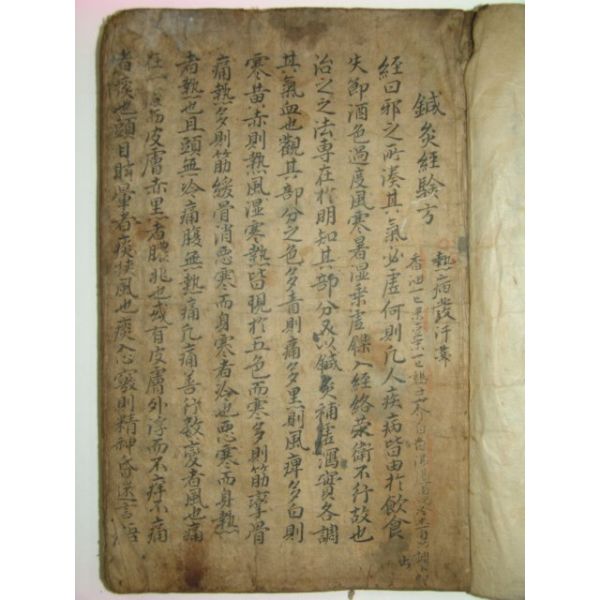 鍼灸經驗方
熱病發汗
經曰邪之所湊其氣必虛何則凡人疾病皆由於飮食
失節酒色過度風寒暑湿乘虛鑠入經絡荣衛不行故也
治之之法專在於明知其部分以鍼灸補虛瀉實各調
其氣血也觀其部分之色多青則痛多黑則風痺多白則
寒黃赤則熱風湿寒熱皆現於五色而寒多則筋攣骨
痛熱多則筋緩骨消惡寒而身寒者冷也惡寒而身熱
者熱也且頭無冷痛腹無熱痛凡痛善行数變者風也痛
在一處而皮膚赤黑者也或有皮膚外浮而不痒不痛
者痰也頭目眩暈者痰使風也痰入心竅則精神昏迷言語